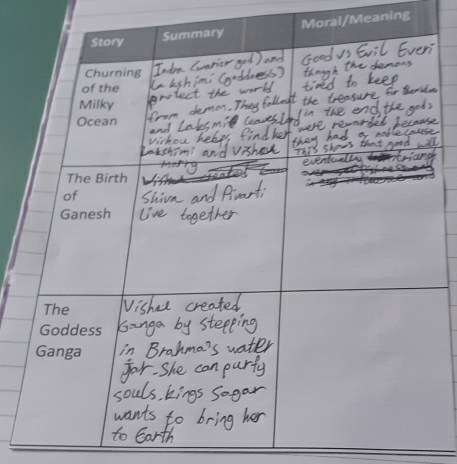 Story
Summary
Moral/Meaning
Churning
of the
Milky
Ocean
Indra (warior god) and
Lakshimi (goddess)
protect the world
from demon. They fallout
and Laksmi leaves
helps find her
Lakshimi and
marry
Good vs Evil Even
though the demons
tried to keep
the treasure for themselves
in the end the gods
were rewarded because
they had a noble cause
This shows that good will
eventually triumph
The Birth
of
Ganesh
Shiva and Pivarti
live together
The
Goddess
Ganga
created
Ganga by stepping
in Brahma's water
jar. She can purify
souls. kings Sagar
wants to bring her
to Earth